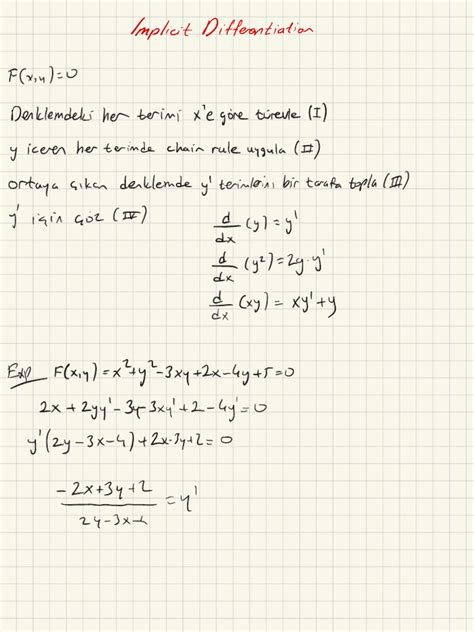 Implicit Differantiation
F(x,y)=0
Denklemdeki her terimi x'e göre türevle (I)
y içeren her terimde chain rule uygula (II)
ortaya çıkan denklemde y' terimlerini bir tarafa topla (III)
y' için çöz (IV)
d/dx (y) = y'
d/dx (y²) = 2y·y'
d/dx (xy) = xy' + y
Exp F(x,y) = x²+y²-3xy+2x-4y+5=0
2x + 2yy' - 3y - 3xy' + 2 - 4y' = 0
y'(2y-3x-4)+2x-3y+2=0
(-2x+3y+2)/(2y-3x-4) = y'